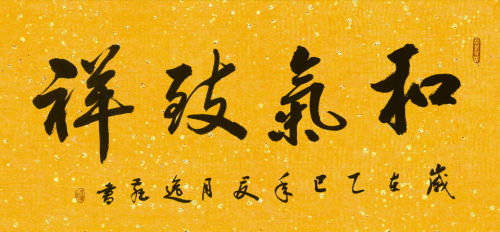 和氣致祥
歲在乙巳年夏月書